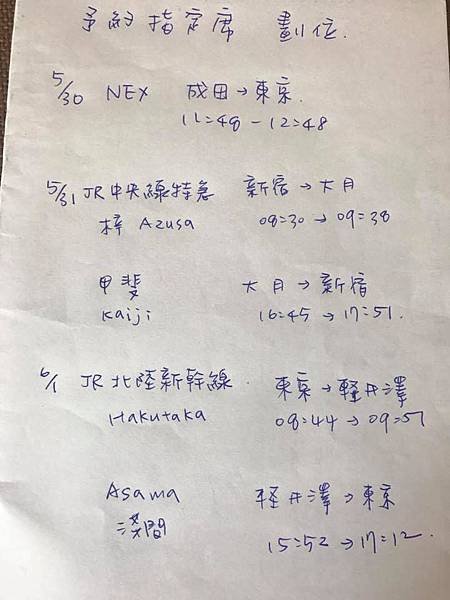 予約 指定席 劃位.
5/30 NEX 成田→東京.
11:48-12:48
5/31 JR中央線特急 新宿→大月
梓 Azusa 08:30→09:38
甲斐 大月→新宿
Kaiji 16:45→17:51.
6/1 JR北陸新幹線. 東京→軽井澤
Hakutaka 08:44→09:51
Asama 軽井澤→東京
淺間 15:52→17:12.